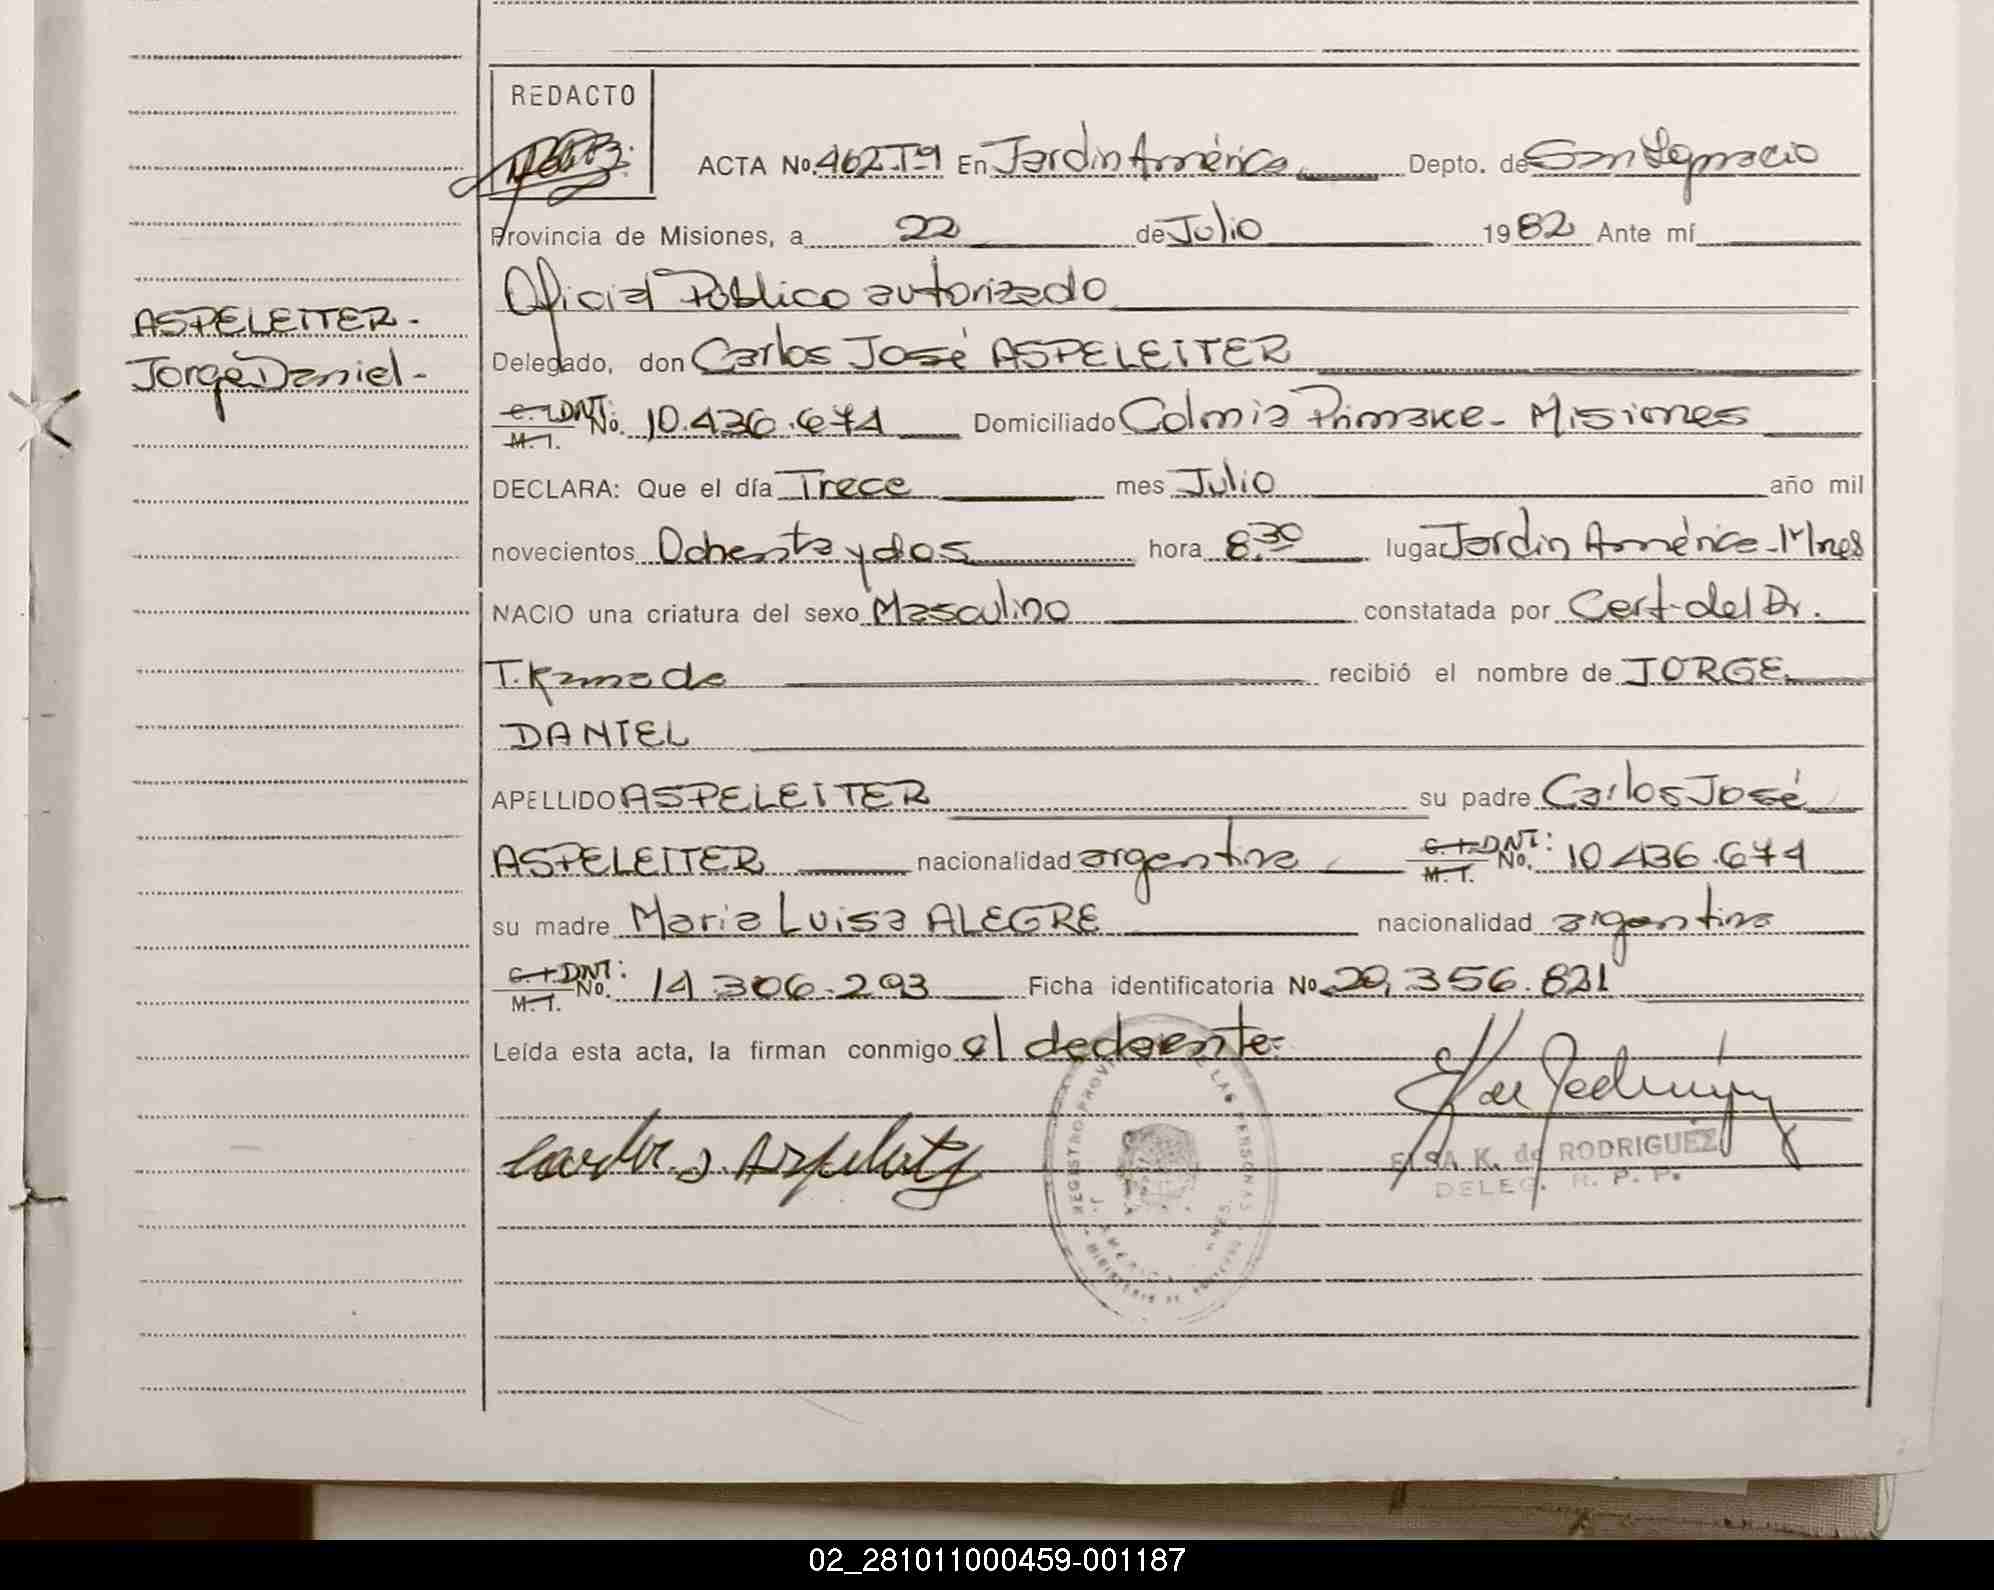 REDACTO
ACTA No. 462 Tº1 En Jardín América Depto. de San Ignacio
Provincia de Misiones, a 22 de Julio 1982 Ante mí
Oficial Público autorizado
ASPELEITER.
Jorge Daniel-
Delegado, don Carlos José ASPELEITER
C. I. DNI: No. 10.436.674 Domiciliado Colonia Primake- Misiones
M. I.
DECLARA: Que el día Trece mes Julio año mil
novecientos Ochenta y dos hora 8.30 lugar Jardín América-Mnes
NACIO una criatura del sexo Masculino constatada por Cert. del Dr.
T. Kamada recibió el nombre de JORGE
DANIEL
APELLIDO ASPELEITER su padre Carlos José
ASPELEITER nacionalidad argentina C. I. DNI: No. 10.436.674
M. I.
su madre Maria Luisa ALEGRE nacionalidad argentina
C. I. DNI: No. 14.306.293 Ficha identificatoria No. 29.356.821
M. I.
Leída esta acta, la firman conmigo el declarante.
REGISTRO PROV DE LAS PERSONAS
J. AMERICA MNES.
MINISTERIO DE GOBIERNO
ELSA K. de RODRIGUEZ
DELEG. R. P. P.
02_281011000459-001187